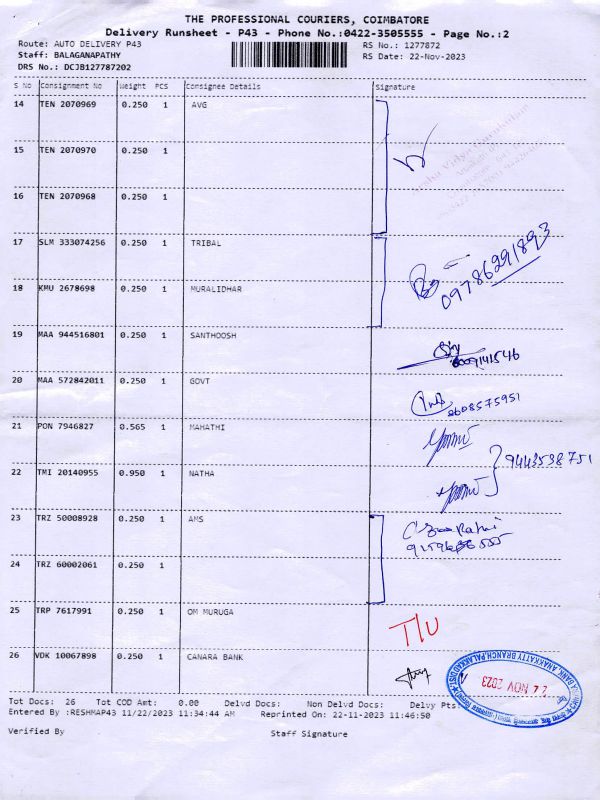 THE PROFESSIONAL COURIERS, COIMBATORE
Delivery Runsheet - P43 - Phone No.:0422-3505555 - Page No.:2
Route: AUTO DELIVERY P43 RS No.: 1277872
Staff: BALAGANAPATHY RS Date: 22-Nov-2023
DRS No.: DCJB127787202
S No Consignment No Weight PCS Consignee Details Signature
14 TEN 2070969 0.250 1 AVG
15 TEN 2070970 0.250 1
16 TEN 2070968 0.250 1
17 SLM 333074256 0.250 1 TRIBAL
09786291893
18 KMU 2678698 0.250 1 MURALIDHAR
19 MAA 944516801 0.250 1 SANTHOOSH
20 MAA 572842011 0.250 1 GOVT
21 PON 7946827 0.565 1 MAHATHI
9443538751
22 TMI 20140955 0.950 1 NATHA
23 TRZ 50008928 0.250 1 AMS
24 TRZ 60002061 0.250 1
25 TRP 7617991 0.250 1 OM MURUGA T/U
26 VDK 10067898 0.250 1 CANARA BANK
24 NOV 2023
ANAKKATTY BRANCH PALAKKAD DIST
Tot Docs: 26 Tot COD Amt: 0.00 Delvd Docs: Non Delvd Docs: Delvy Pts:
Entered By :RESHMAP43 11/22/2023 11:34:44 AM Reprinted On: 22-11-2023 11:46:50
Verified By Staff Signature